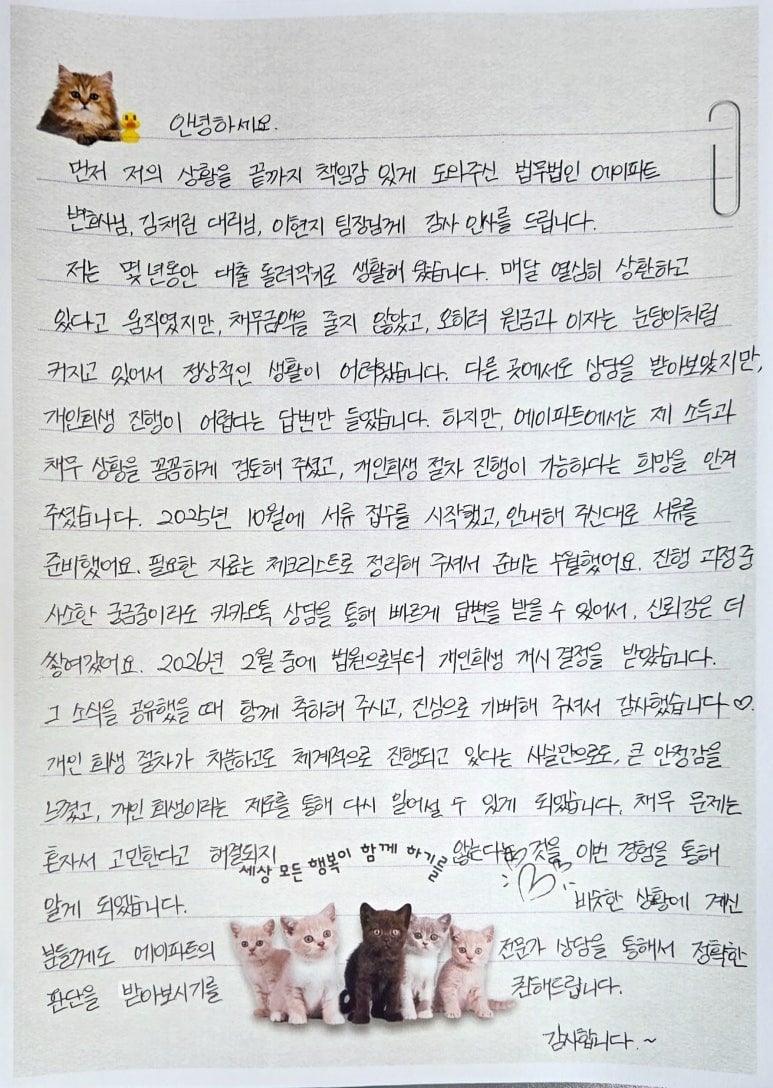 안녕하세요.
먼저 저의 상황을 끝까지 책임감 있게 도와주신 법무법인 에이파트
변호사님, 김채린 대리님, 이현지 팀장님께 감사 인사를 드립니다.
저는 몇 년동안 대출 돌려막기로 생활해 왔습니다. 매달 열심히 상환하고
있다고 움직였지만, 채무금액은 줄지 않았고, 오히려 원금과 이자는 눈덩이처럼
커지고 있어서 정상적인 생활이 어려웠습니다. 다른 곳에서도 상담을 받아보았지만,
개인회생 진행이 어렵다는 답변만 들었습니다. 하지만, 에이파트에서는 제 소득과
채무 상황을 꼼꼼하게 검토해 주셨고, 개인회생 절차 진행이 가능하다는 희망을 안겨
주셨습니다. 2025년 10월에 서류 접수를 시작했고, 안내해 주신대로 서류를
준비했어요. 필요한 자료는 체크리스트로 정리해 주셔서 준비는 수월했어요. 진행 과정 중
사소한 궁금증이라도 카카오톡 상담을 통해 빠르게 답변을 받을 수 있어서, 신뢰감은 더
쌓여갔어요. 2026년 2월 중에 법원으로부터 개인회생 개시 결정을 받았습니다.
그 소식을 공유했을 때 함께 축하해 주시고, 진심으로 기뻐해 주셔서 감사했습니다♡.
개인 회생 절차가 차분하고도 체계적으로 진행되고 있다는 사실만으로도, 큰 안정감을
느꼈고, 개인 회생이라는 제도를 통해 다시 일어설 수 있게 되었습니다. 채무 문제는
혼자서 고민한다고 해결되지 않는다는 것을 이번 경험을 통해
세상 모든 행복이 함께 하기를
알게 되었습니다. 비슷한 상황에 계신
분들께도 에이파트의 전문가 상담을 통해서 정확한
판단을 받아보시기를 권해드립니다.
감사합니다.~